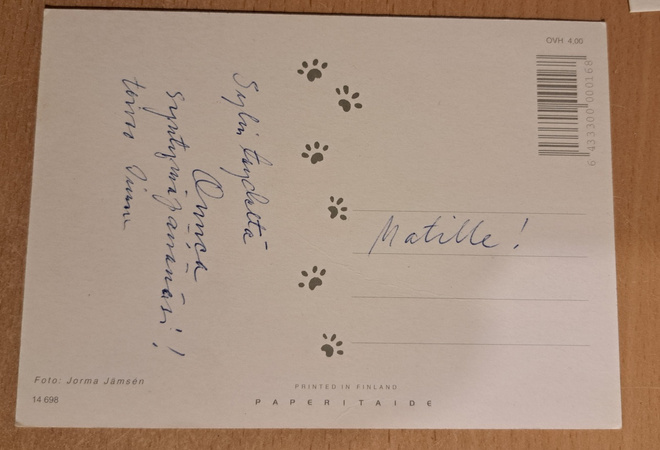 OVH 4,00
6 433300 000168
Sylin täydeltä
Onnea
syntymäpäivänäsi!
toivoo
Matille!
Foto: Jorma Jämsén
14 698
PRINTED IN FINLAND
PAPERITAIDE